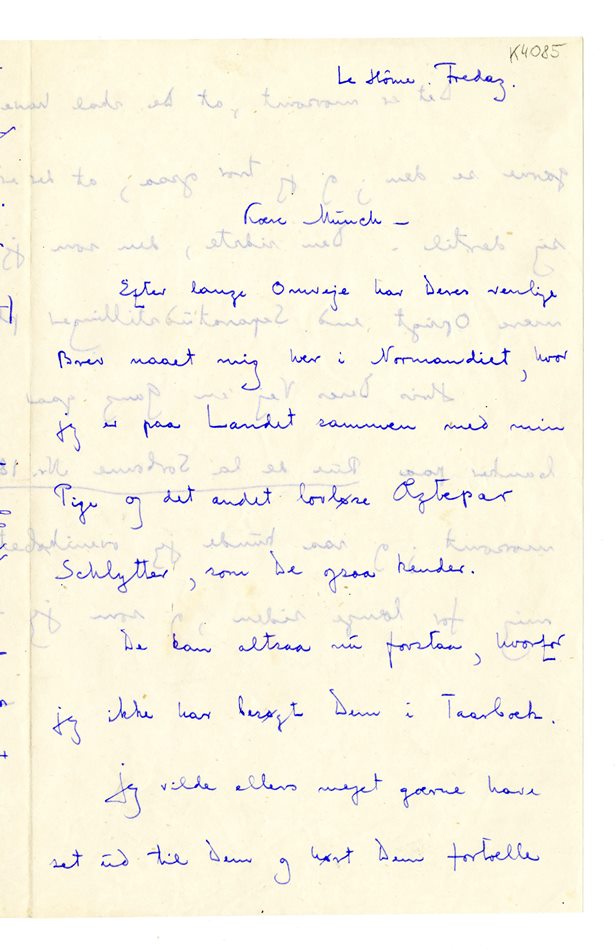 K4085
Le Hôme. Fredag.
Kære Münch –
Efter lange Omveje har Deres venlige
Brev naaet mig her i Normandiet, hvor
jeg er paa Landet sammen med min
Pige og det andet lovløse Ægtepar
Schlytter, som De ogsaa kender.
De kan altsaa nu forstaa, hvorfor
jeg ikke har besøgt Dem i Taarbæk.
Jeg vilde ellers meget gærne have
set ud til Dem og hørt Dem fortælle